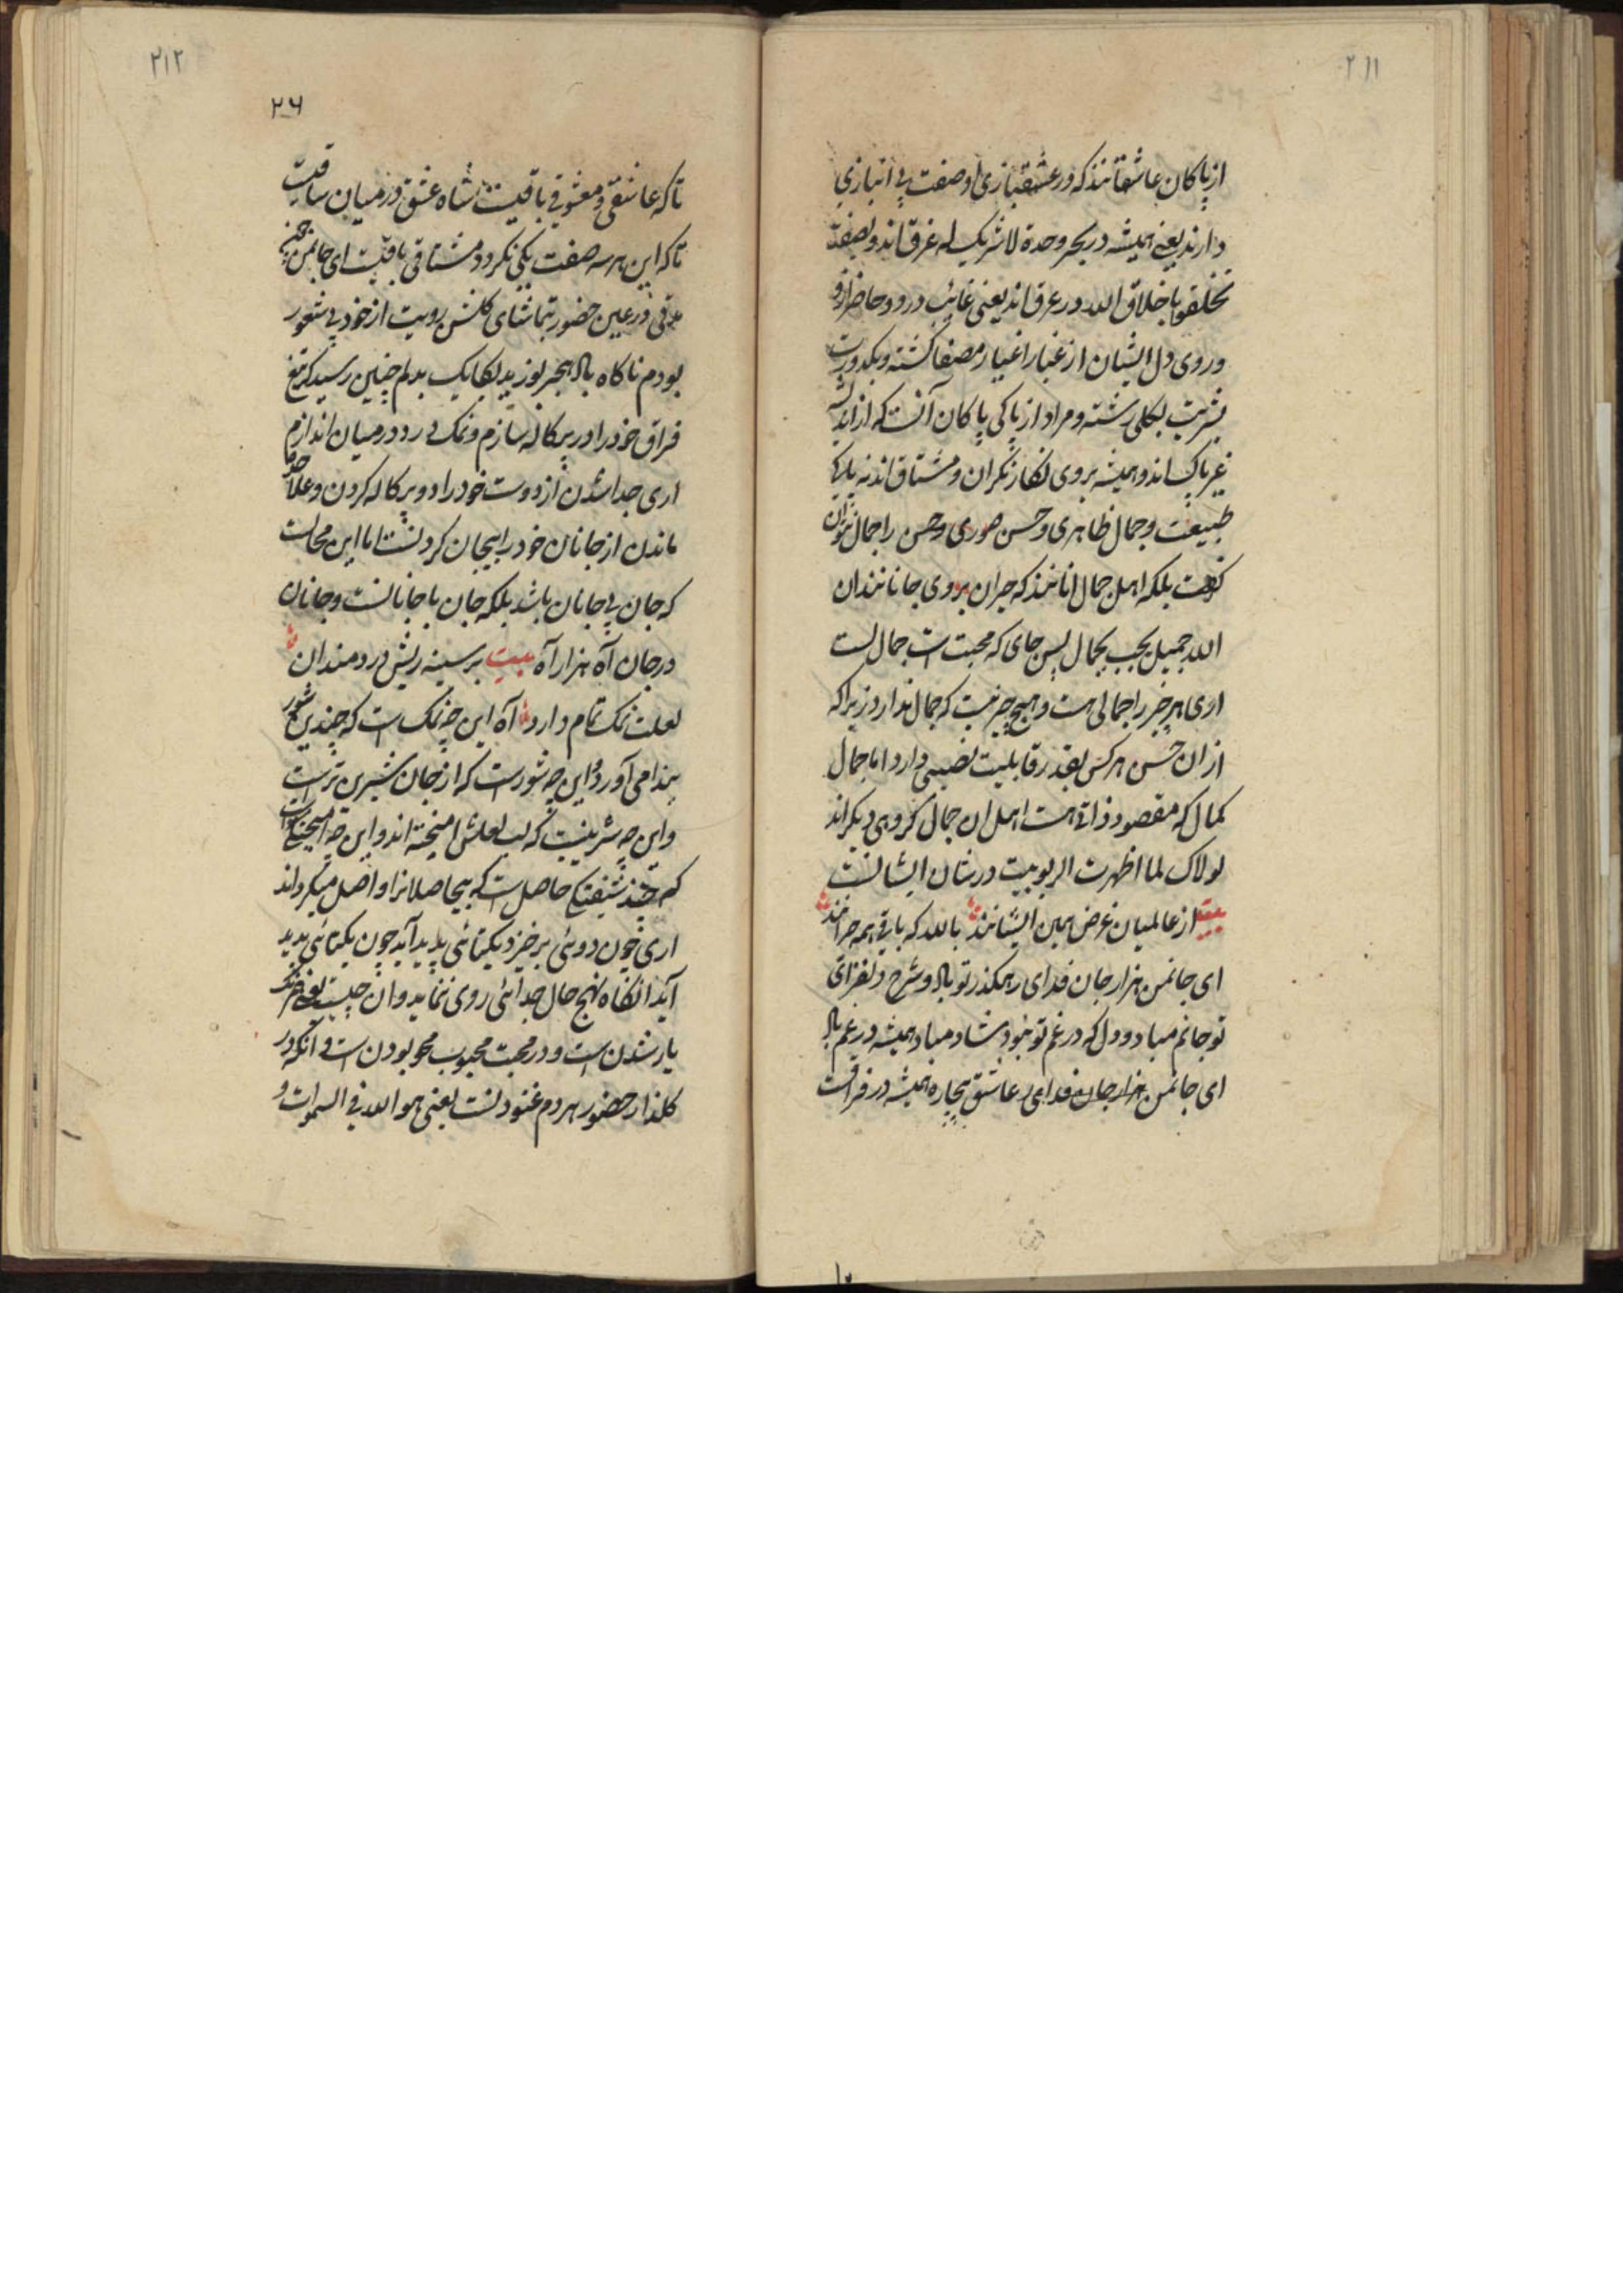 ۲۱۱
از پاکان عاشقانند که در عشقبازی او صفت بی انبازی
دارند یعنی همیشه در بحر وحدة لا شریک له غرق اند و بصفت
تخلقوا باخلاق الله در عرق اند یعنی غائب درو و حاضر ازو
و روی دل ایشان از غبار اغیار مصفا کشته و بکدورت
بشریت بکلی رشته و مراد از پاکی پاکان آنست که از اندیشه
غیر پاک اند و همیشه بروی نکار نکران و مشتاق اند نه پاکی
طبیعت و جمال ظاهری و حسن صوری و حسن را جمال نتوان
کفت بلکه اهل جمال انانند که حیران بروی جانانند ان
الله جمیل یحب الجمال پس جای که محبت است جمالست
اری هر چیز را جمالی هست و هیچ چیز نیست که جمال ندارد زیراکه
از ان حسن هر کس بقدر قابلیت نصیبی دارد اما جمال
کمال که مقصود ذاتی است اهل ان جمال کروهی دیکر اند
لولاک لما اظهرت الربوبیت در شان ایشانست
بیت از عالمیان غرض همین ایشانند بالله که باقی همه
ای جانمن هزار جان فدای رهکذر تو باد و شرح دلفزای
تو جانم مباد و دل که در غم تو نبود شاد مباد همیشه در غم باد
ای جانمن هزار جان فدای عاشق بیچاره همیشه در فراقست
۲۱۲
۲۶
تاکه عاشقی و معشوقی باقیست شاه عشق در میان ساقیست
تاکه این هر سه صفت یکی نکردد مشتاقی باقیست ای جانمن
در عین حضور بتماشای کلشن رویت از خود بی شعور
بودم ناکاه باد هجر بوزید یکایک بدلم چنین رسید که تیغ
فراق خود را در پرکاله سازم و نمک درد در میان اندازم
اری جدا شدن از دوست خود را دو پرکاله کردن و علاحده
ماندن از جانان خود را بیجان کردنست اما این محالست
که جان بی جانان باشد بلکه جان با جانانست و جانان
در جان آه هزار آه بیت بر سینه ریش دردمندان
لعلت نمک تمام دارد آه این چه نمک است که چندین شور
پیدا می آورد و این چه شورست که از جان شیرین ترست
و این چه شرینیست که لب لعلش امیخته اند و این چه
که چند حاصل است که بیحاصلانرا واصل میکرداند
اری چون دوئی برخیزد یکتائی پدید آید چون یکتائی پدید
آید انکاه هیچ حال جدائی روی ننماید و ان چیست یعنی
یار شدن است و در محبت محبوب محو بودن است و انکه در
کلذار حضور هر دم غنودنست یعنی هو الله فی السموات و